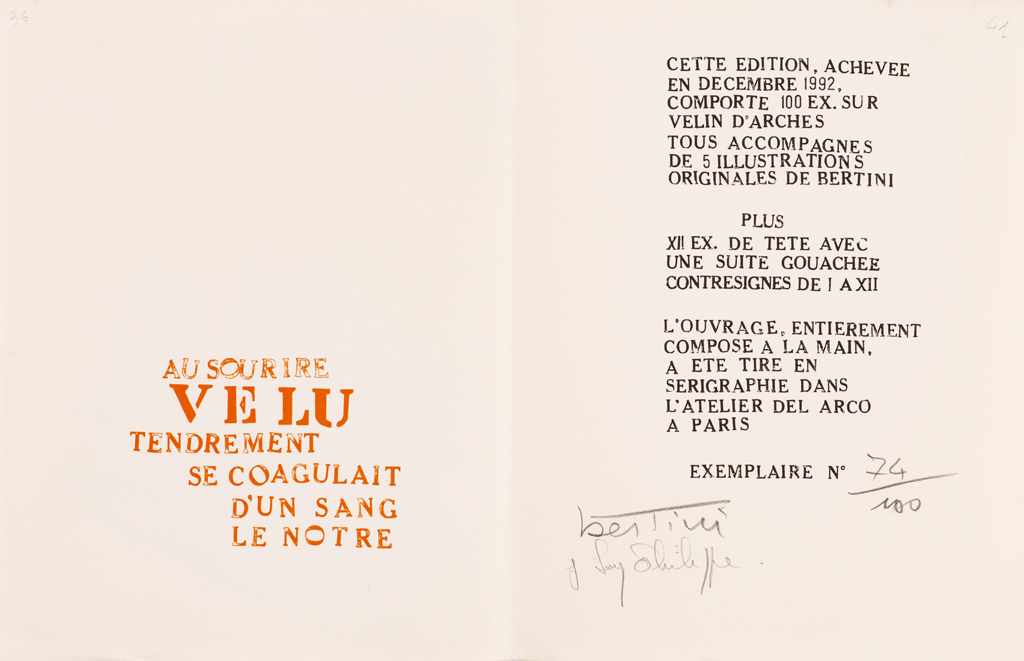 36
AU SOURIRE
VELU
TENDREMENT
SE COAGULAIT
D'UN SANG
LE NOTRE
41
CETTE EDITION, ACHEVEE
EN DECEMBRE 1992,
COMPORTE 100 EX. SUR
VELIN D'ARCHES
TOUS ACCOMPAGNES
DE 5 ILLUSTRATIONS
ORIGINALES DE BERTINI
PLUS
XII EX. DE TETE AVEC
UNE SUITE GOUACHEE
CONTRESIGNES DE I A XII
L'OUVRAGE, ENTIEREMENT
COMPOSE A LA MAIN,
A ETE TIRE EN
SERIGRAPHIE DANS
L'ATELIER DEL ARCO
A PARIS
EXEMPLAIRE N° 74/100
bertini